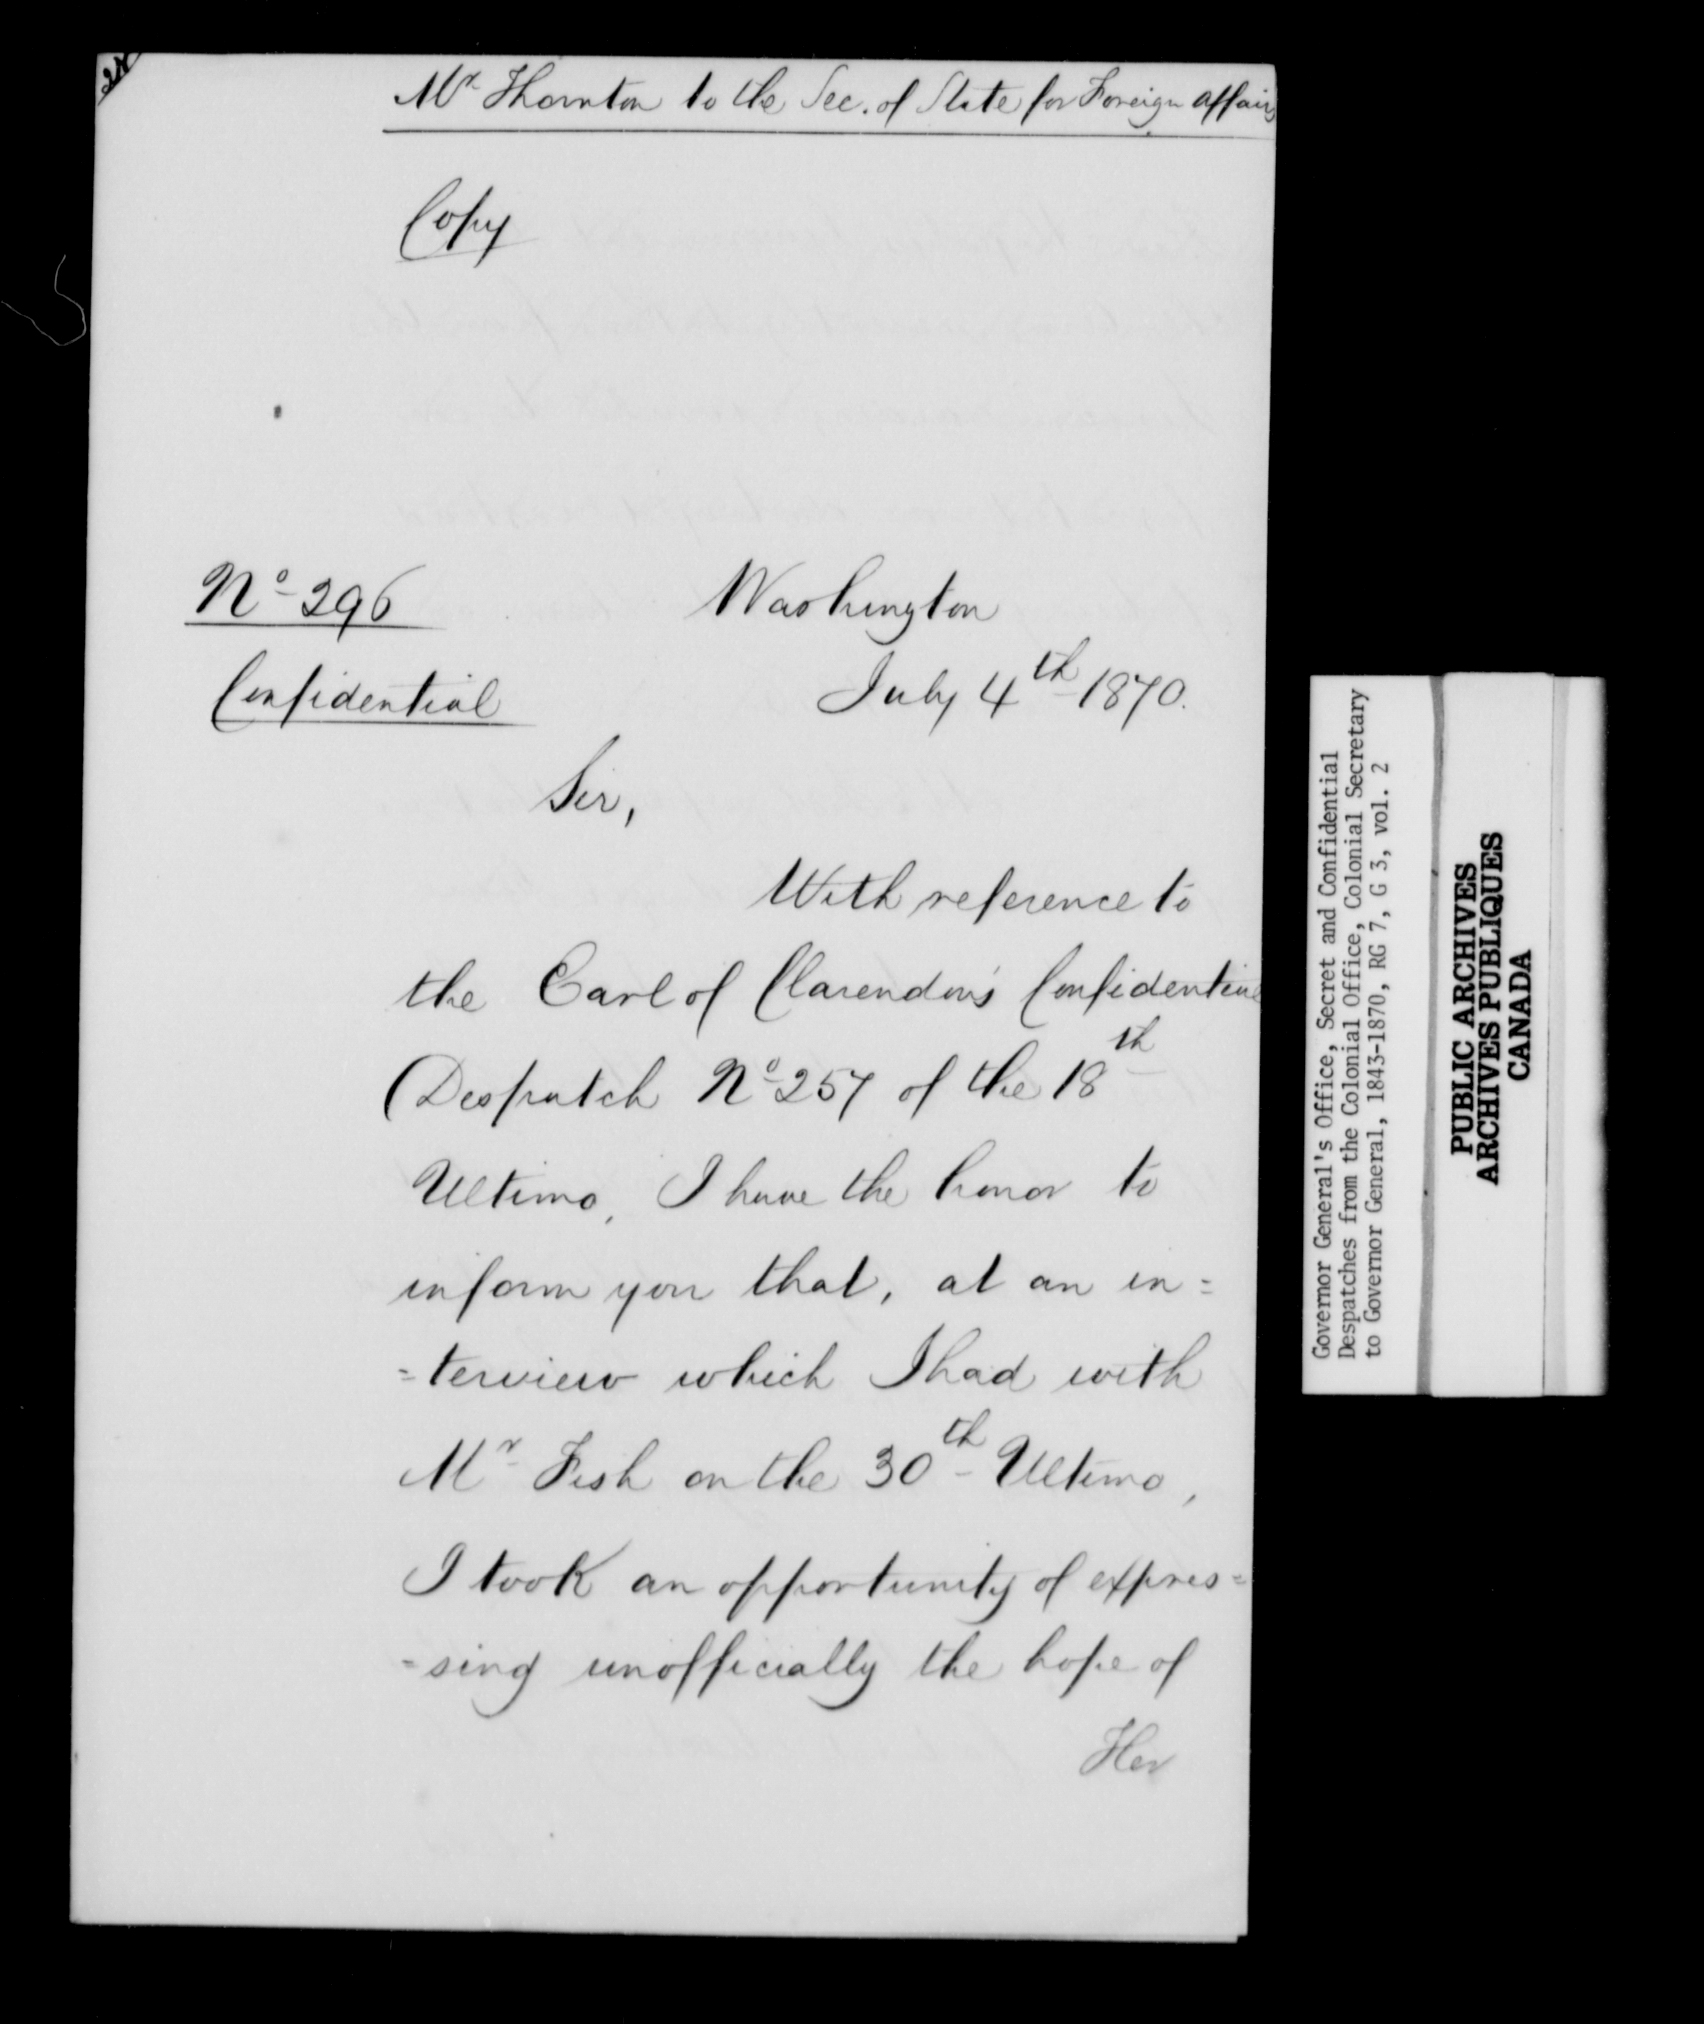 Mr Thornton to the Sec. of State for Foreign Affairs
Copy
No 296
Washington
Confidential
July 4th 1870.
Sir,
With reference to
the Earl of Clarendon's Confidential
Despatch No 257 of the 18th
Ultimo, I have the honor to
inform you that, at an in=
=terview which I had with
Mr Fish on the 30th Ultimo,
I took an opportunity of expres=
=sing unofficially the hope of
Her
Governor General's Office, Secret and Confidential
Despatches from the Colonial Office, Colonial Secretary
to Governor General, 1843-1870, RG 7, G 3, vol. 2
PUBLIC ARCHIVES
ARCHIVES PUBLIQUES
CANADA